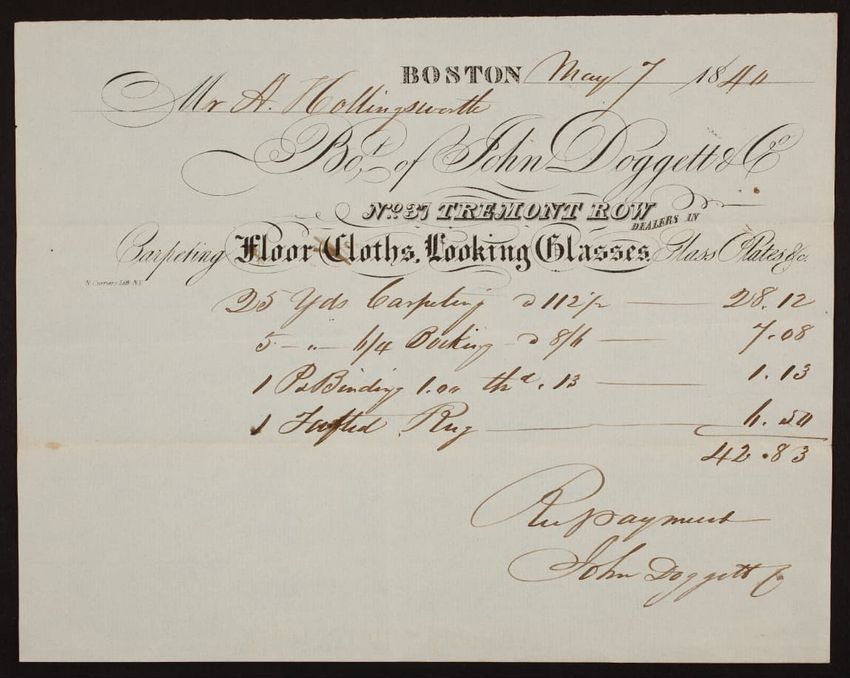 BOSTON May 7 1840
Mr A. Hollingsworth
Bot. of John Doggett & Co
No. 37 TREMONT ROW
DEALERS IN
Carpeting Floor Cloths, Looking Glasses, Glass Plates &c.
N. Currier's Lith. N.Y.
25 Yds Carpeting @ 112½ — 28.12
5 - " - 6/4 Bocking @ 8/6 — 7.08
1 Ps Binding 1.00 thd. .13 — 1.13
1 Tufted Rug — 6.50
42.83
Rec payment
John Doggett Co